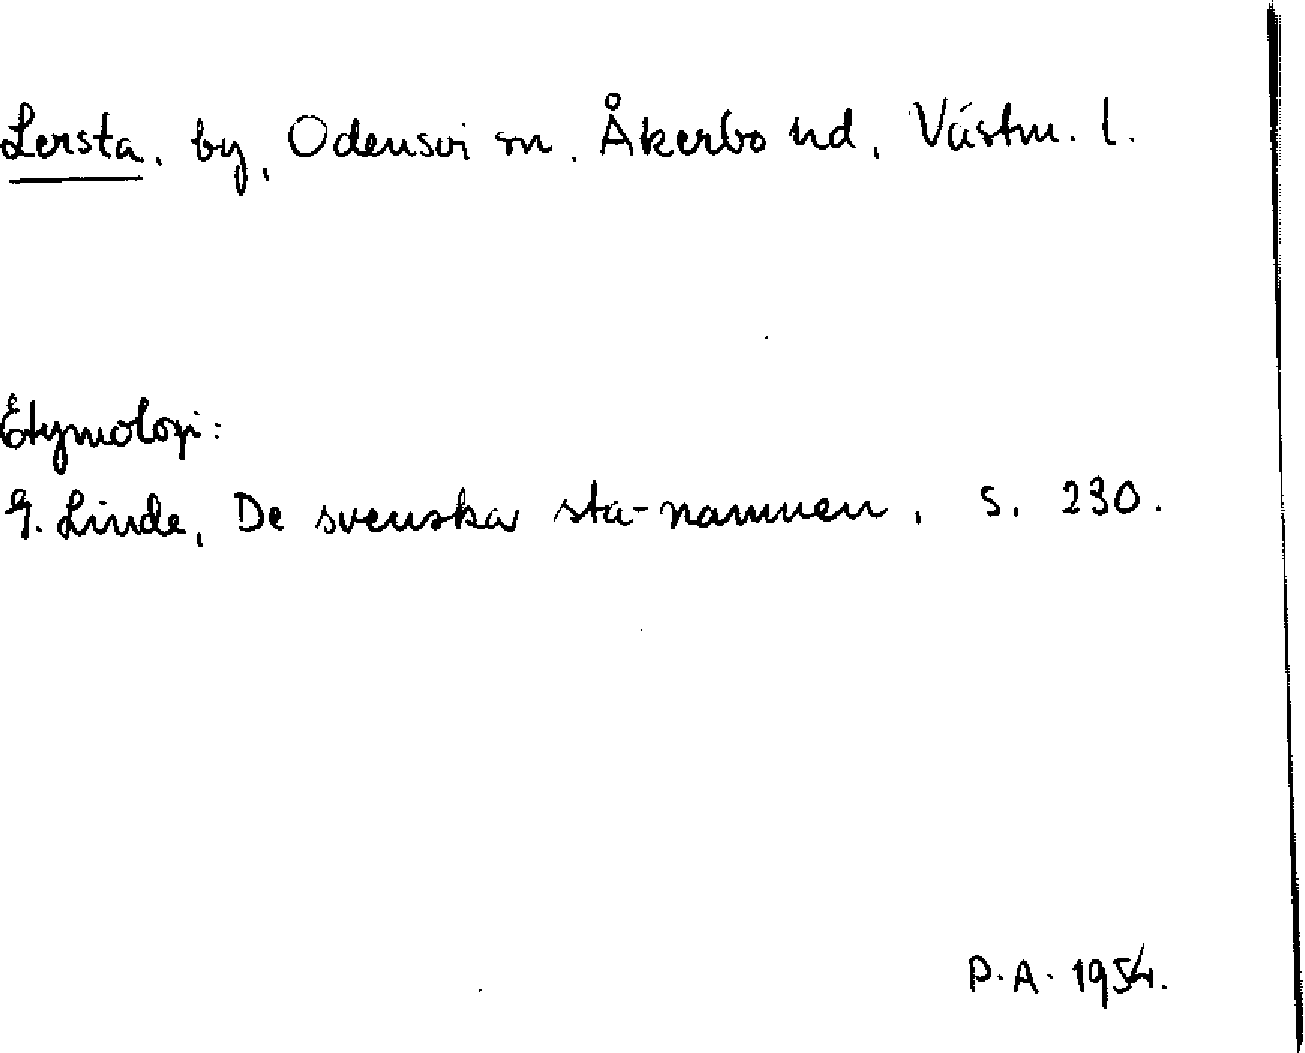 Lersta, by, Odensvi sn, Åkerbo hd, Västm. l.
Etymologi:
G. Linde, De svenska sta-namnen, s. 230.
P.A. 1954.